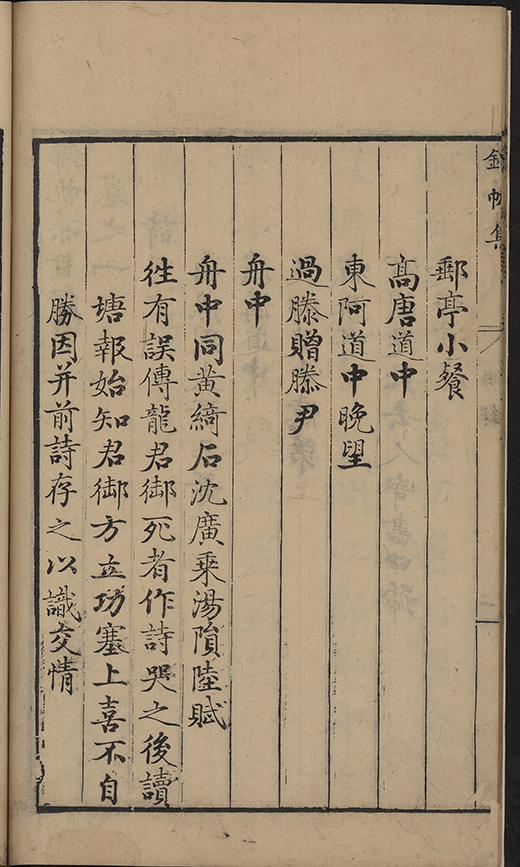 帙集
郵亭小餐
高唐道中
東阿道中晚望
過滕贈滕尹
舟中
舟中同黃綺石沈廣乘湯隕陸賦
徃有誤傳龍君御死者作詩哭之後讀
塘報始知君御方立功塞上喜不自
勝因并前詩存之以識交情